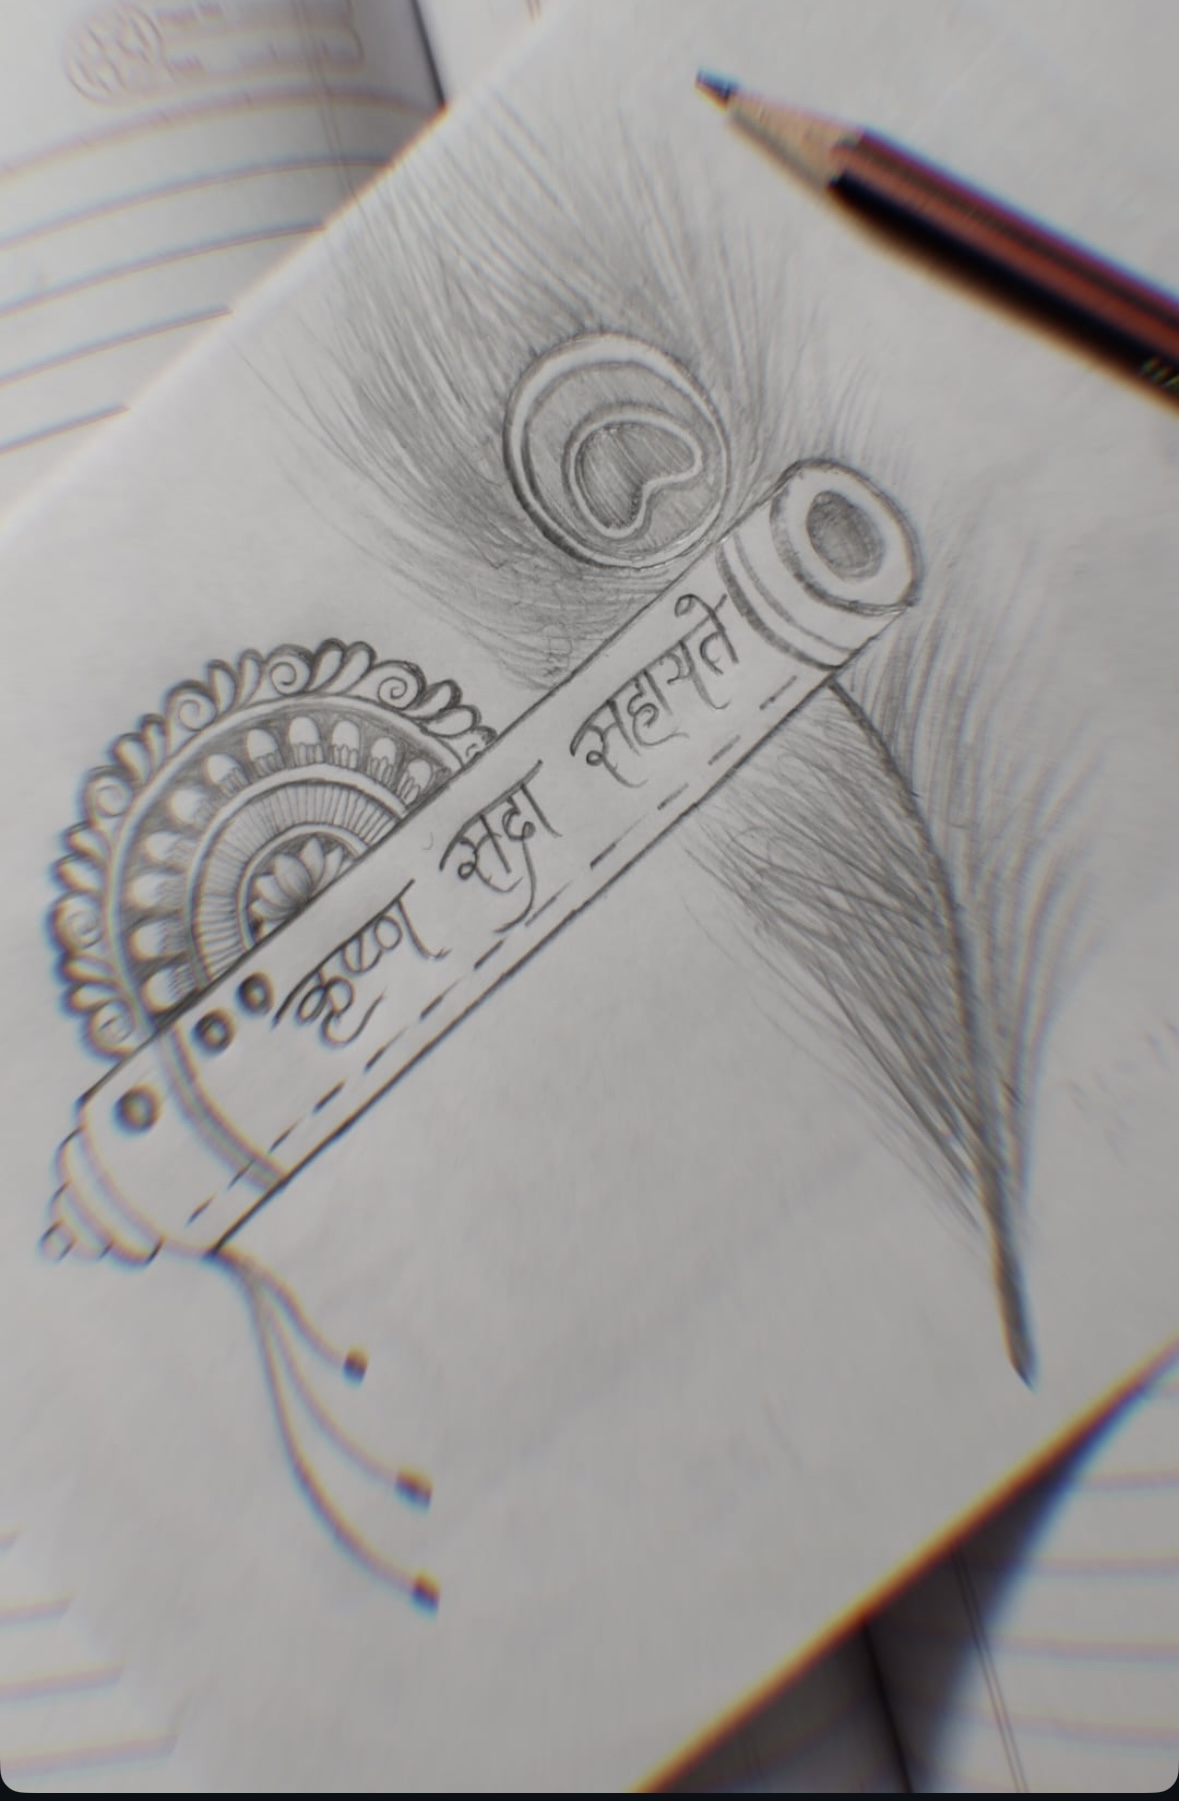 कृष्ण सदा सहायते